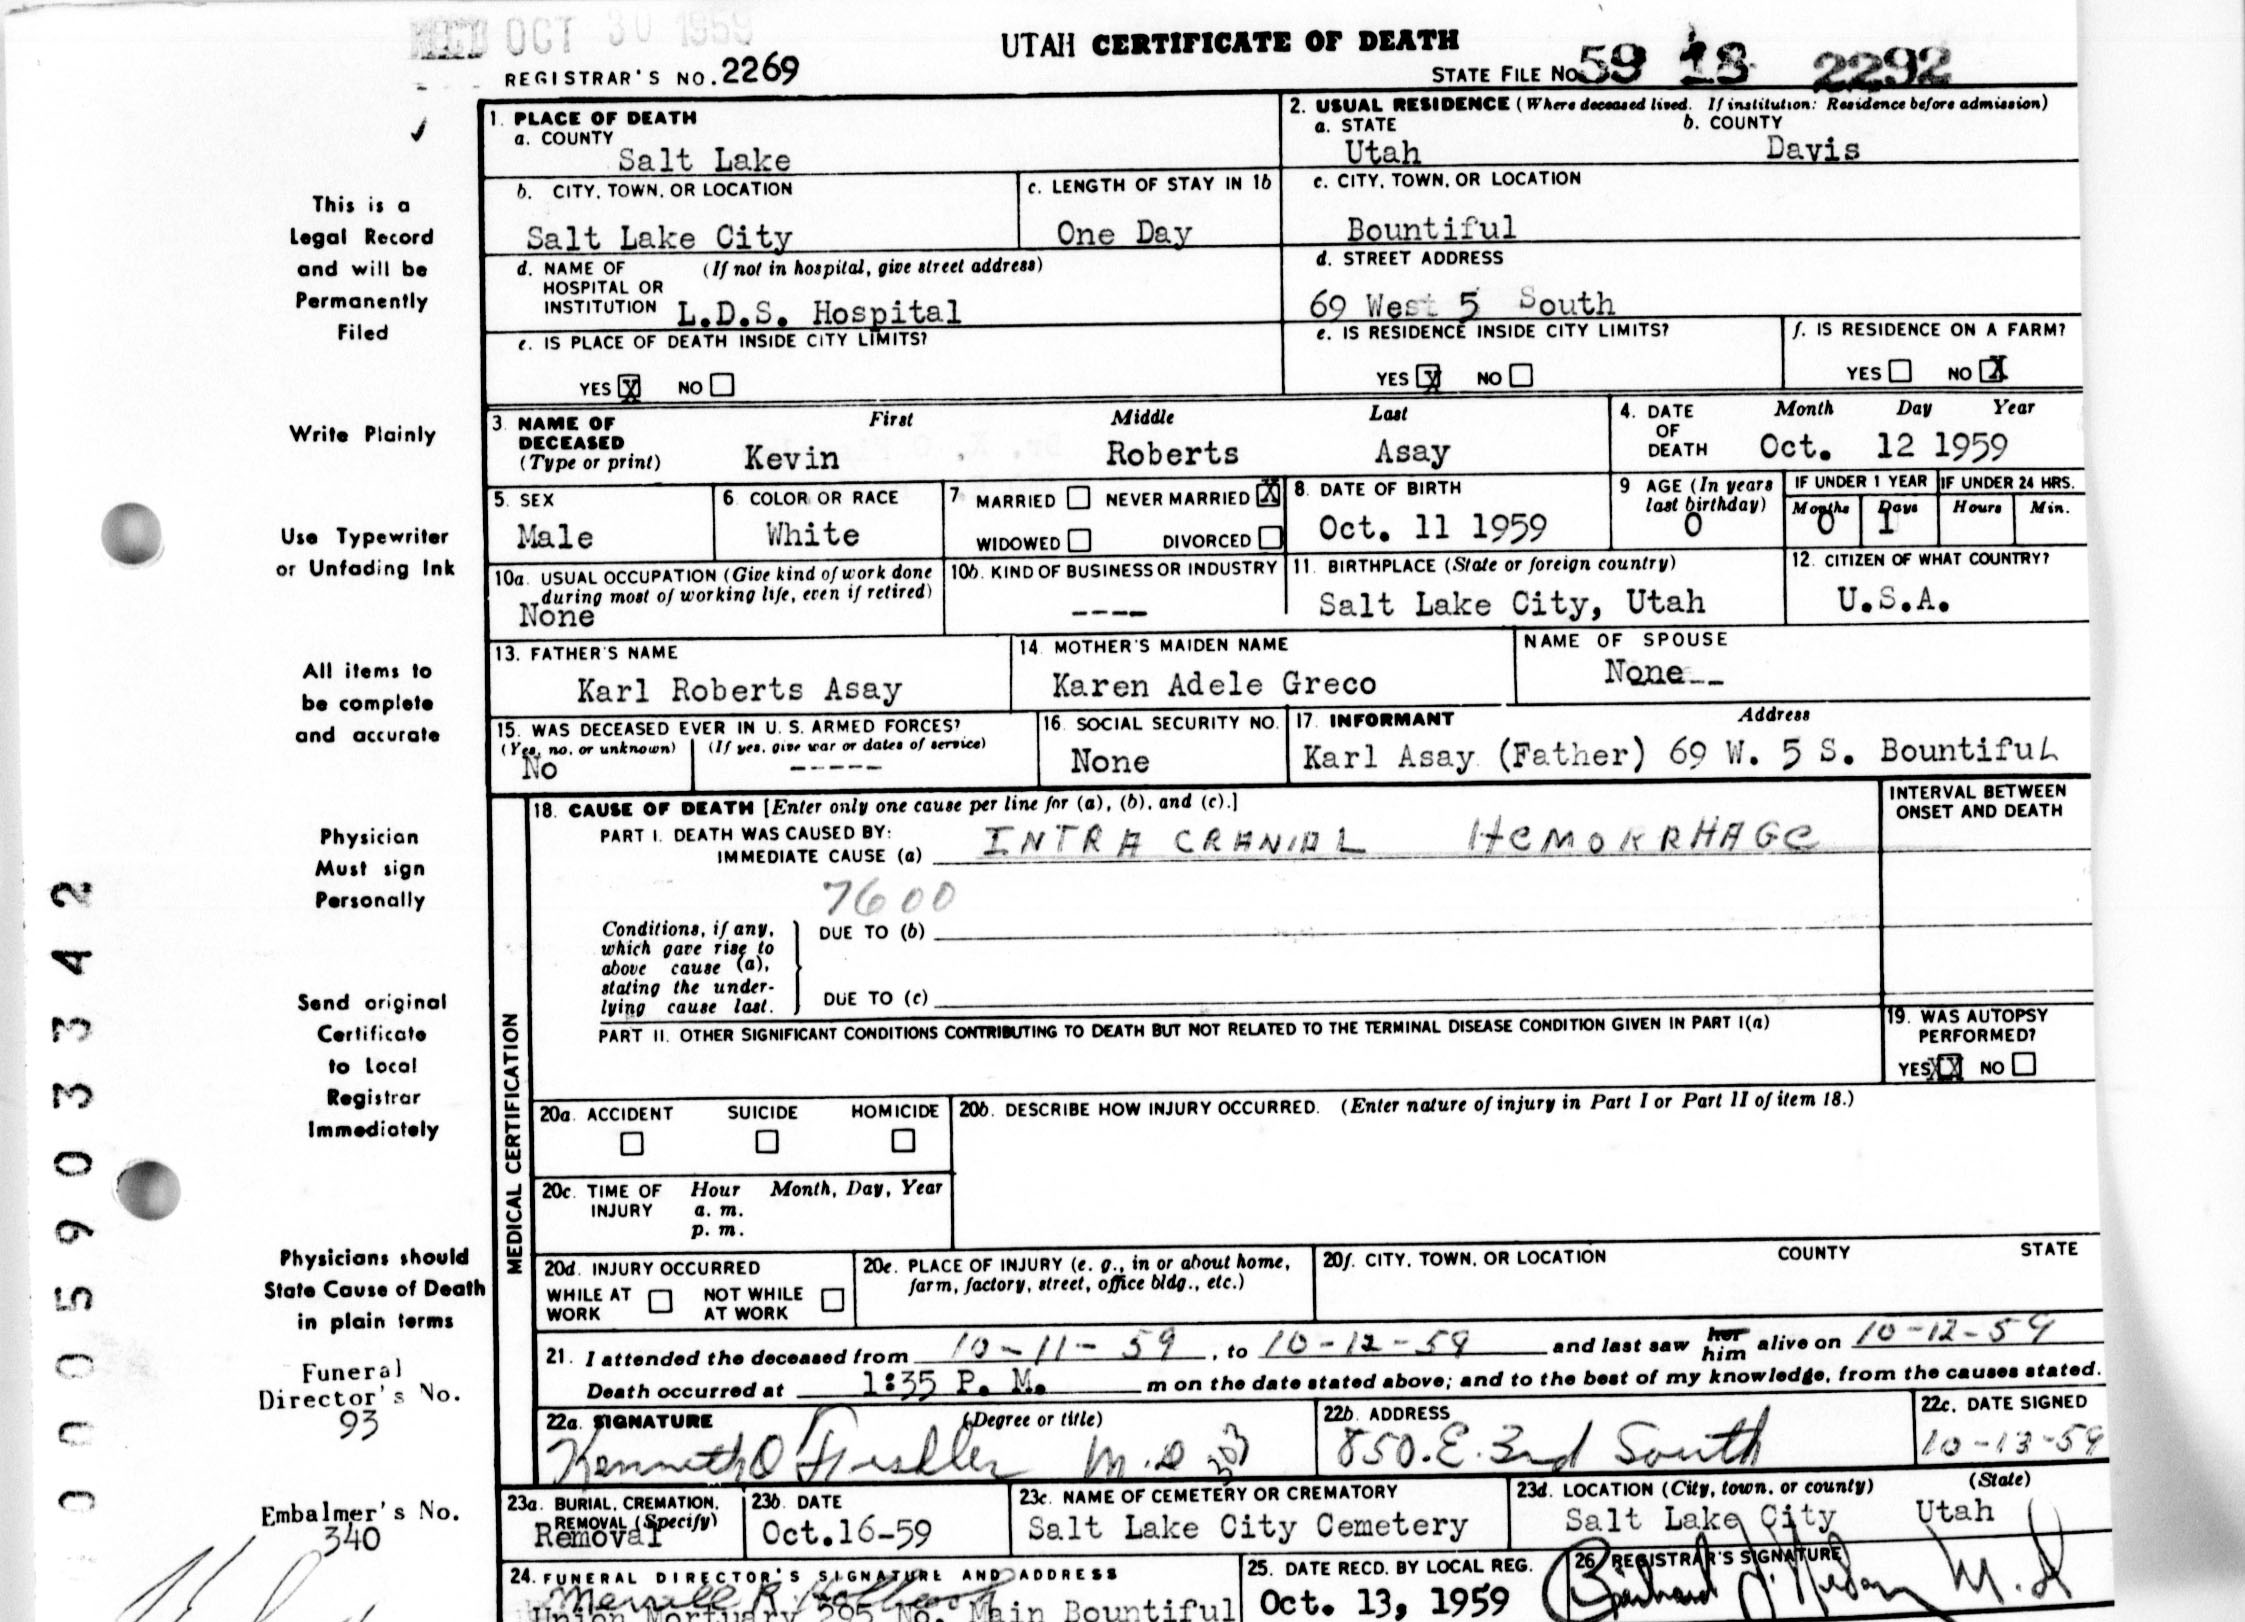 REC'D OCT 30 1959
UTAH CERTIFICATE OF DEATH
REGISTRAR'S NO. 2269
STATE FILE No. 59 18 2292
1. PLACE OF DEATH
a. COUNTY
Salt Lake
2. USUAL RESIDENCE (Where deceased lived. If institution: Residence before admission)
a. STATE b. COUNTY
Utah Davis
b. CITY, TOWN, OR LOCATION
Salt Lake City
c. LENGTH OF STAY IN 1b
One Day
c. CITY, TOWN, OR LOCATION
Bountiful
d. NAME OF (If not in hospital, give street address)
HOSPITAL OR
INSTITUTION L.D.S. Hospital
d. STREET ADDRESS
69 West 5 South
e. IS PLACE OF DEATH INSIDE CITY LIMITS?
YES X NO
e. IS RESIDENCE INSIDE CITY LIMITS?
YES X NO
f. IS RESIDENCE ON A FARM?
YES NO X
3. NAME OF First Middle Last
DECEASED
(Type or print) Kevin Roberts Asay
4. DATE Month Day Year
OF
DEATH Oct. 12 1959
5. SEX
Male
6. COLOR OR RACE
White
7. MARRIED NEVER MARRIED X
WIDOWED DIVORCED
8. DATE OF BIRTH
Oct. 11 1959
9 AGE (In years
last birthday)
0
IF UNDER 1 YEAR
Months Days
0 1
IF UNDER 24 HRS.
Hours Min.
10a. USUAL OCCUPATION (Give kind of work done
during most of working life, even if retired)
None
10b. KIND OF BUSINESS OR INDUSTRY
----
11. BIRTHPLACE (State or foreign country)
Salt Lake City, Utah
12. CITIZEN OF WHAT COUNTRY?
U.S.A.
13. FATHER'S NAME
Karl Roberts Asay
14. MOTHER'S MAIDEN NAME
Karen Adele Greco
NAME OF SPOUSE
None--
15. WAS DECEASED EVER IN U. S. ARMED FORCES?
(Yes, no, or unknown) (If yes, give war or dates of service)
No -----
16. SOCIAL SECURITY NO.
None
17. INFORMANT Address
Karl Asay (Father) 69 W. 5 S. Bountiful
MEDICAL CERTIFICATION
18. CAUSE OF DEATH [Enter only one cause per line for (a), (b), and (c).]
PART I. DEATH WAS CAUSED BY:
IMMEDIATE CAUSE (a) INTRA CRANIAL HEMORRHAGE
INTERVAL BETWEEN
ONSET AND DEATH
7600
Conditions, if any,
which gave rise to
above cause (a),
stating the under-
lying cause last.
DUE TO (b)
DUE TO (c)
PART II. OTHER SIGNIFICANT CONDITIONS CONTRIBUTING TO DEATH BUT NOT RELATED TO THE TERMINAL DISEASE CONDITION GIVEN IN PART I(a)
19. WAS AUTOPSY
PERFORMED?
YES XX NO
20a. ACCIDENT SUICIDE HOMICIDE
20b. DESCRIBE HOW INJURY OCCURRED. (Enter nature of injury in Part I or Part II of item 18.)
20c. TIME OF Hour Month, Day, Year
INJURY a. m.
p. m.
20d. INJURY OCCURRED
WHILE AT NOT WHILE
WORK AT WORK
20e. PLACE OF INJURY (e. g., in or about home,
farm, factory, street, office bldg., etc.)
20f. CITY, TOWN, OR LOCATION COUNTY STATE
21. I attended the deceased from 10-11-59, to 10-12-59 and last saw her him alive on 10-12-59
Death occurred at 1:35 P. M. m on the date stated above; and to the best of my knowledge, from the causes stated.
22a. SIGNATURE (Degree or title)
Kenneth O M.D.
22b. ADDRESS
850. E. 3rd South
22c. DATE SIGNED
10-13-59
23a. BURIAL, CREMATION,
REMOVAL (Specify)
Removal
23b. DATE
Oct.16-59
23c. NAME OF CEMETERY OR CREMATORY
Salt Lake City Cemetery
23d. LOCATION (City, town, or county) (State)
Salt Lake City Utah
24. FUNERAL DIRECTOR'S SIGNATURE AND ADDRESS
Merrill R. Holbrook
Union Mortuary 295 No. Main Bountiful
25. DATE RECD. BY LOCAL REG.
Oct. 13, 1959
26. REGISTRAR'S SIGNATURE
M.D.
This is a
Legal Record
and will be
Permanently
Filed
Write Plainly
Use Typewriter
or Unfading Ink
All items to
be complete
and accurate
Physician
Must sign
Personally
Send original
Certificate
to Local
Registrar
Immediately
Physicians should
State Cause of Death
in plain terms
Funeral
Director's No.
93
Embalmer's No.
340
0005903342